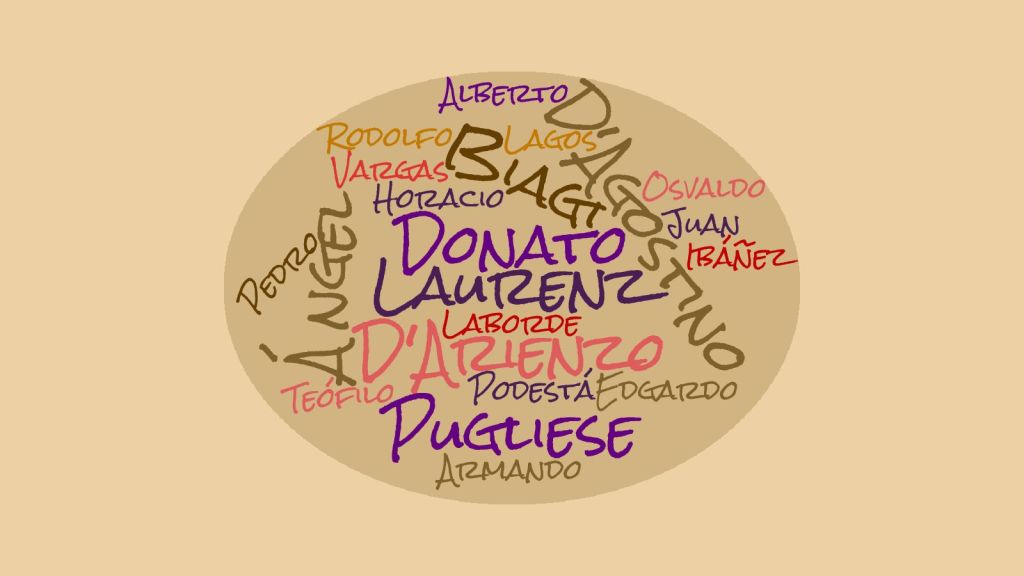 Alberto
D'Agostino
Rodolfo
Biagi
Lagos
Vargas
Horacio
Osvaldo
Juan
Ibáñez
Pedro
Ángel
Donato
Laurenz
Laborde
D'Arienzo
Teófilo
Podestá
Edgardo
Pugliese
Armando